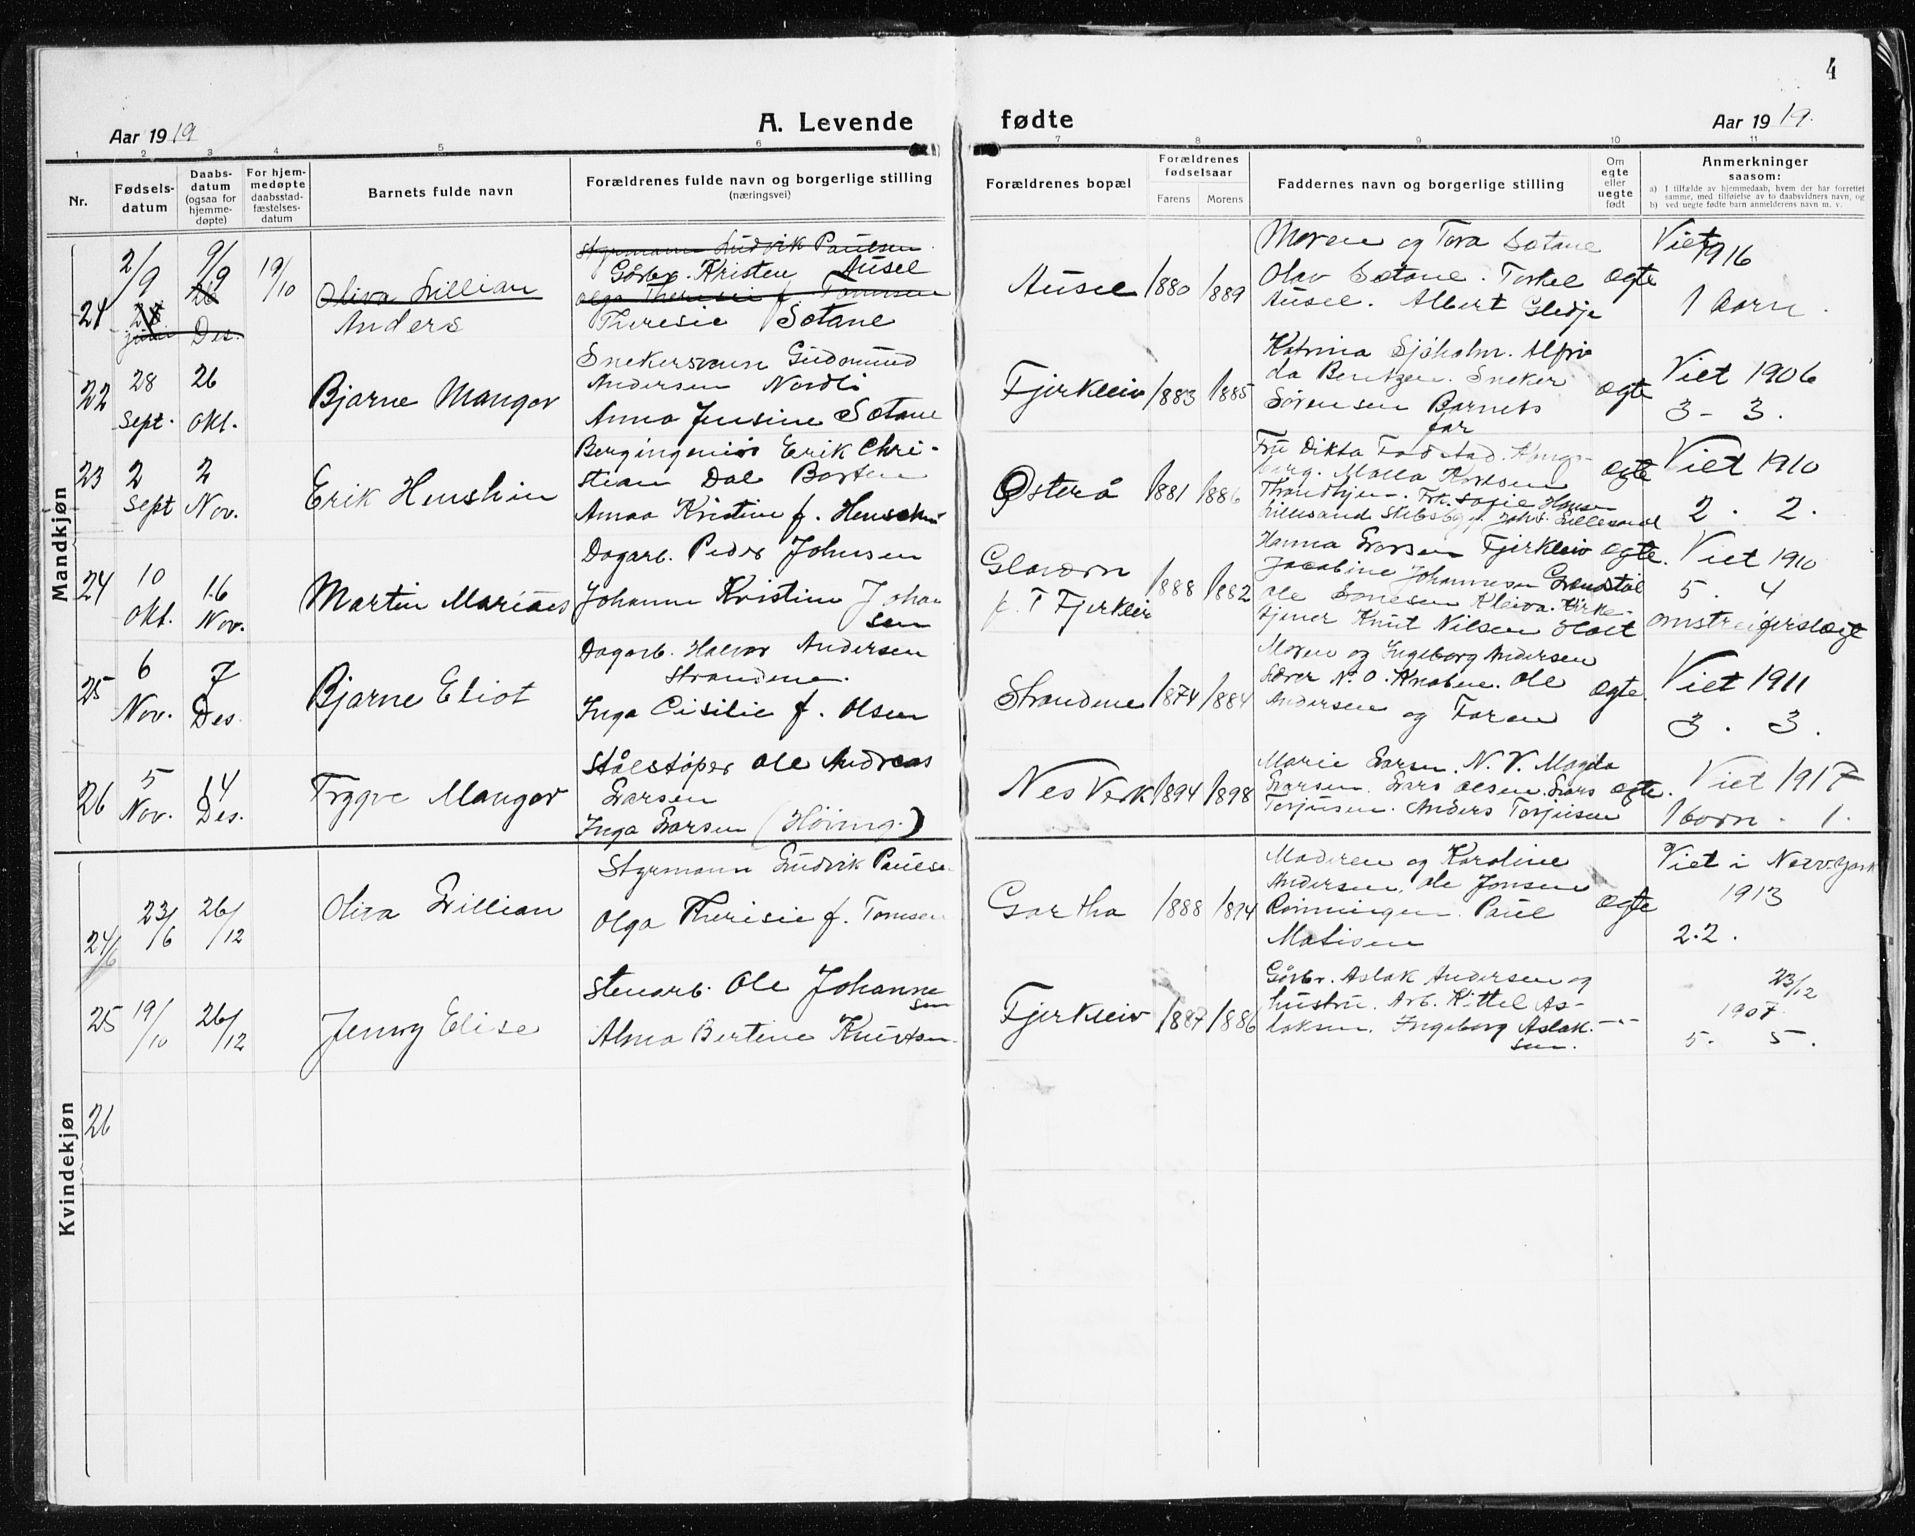 4
Aar 1919
A. Levende
fødte
Aar 1919.
1 2 3 4 5 6 7 8 9 10 11
Nr.
Fødsels-
datum
Daabs-
datum
(ogsaa for
hjemme-
døpte)
For hjem-
medøpte
daabsstad-
fæstelses-
datum
Barnets fulde navn
Forældrenes fulde navn og borgerlige stilling
(næringsvei)
Forældrenes bopæl
Forældrenes
fødselsaar
Farens
Morens
Faddernes navn og borgerlige stilling
Om
egte
eller
uegte
født
Anmerkninger
saasom:
a) I tilfælde av hjemmedaab, hvem der har forrettet
samme, med tilføielse av to daabsvidners navn, og
b) ved uegte fødte barn anmelderens navn m. v.
Mandkjøn
21
2/9
9/9
26
Des.
19/10
Oliva Lillian
Anders
Styrmann Ludvik Paulsen
Gårbr. Kristen Ausel
Olga Theresie f. Tomsen
Theresie Sætane
Ausel
1880
1889
Moren og Tora Sætane
Olav Sætane. Torkel
Ausel. Albert Gledje
ægte
Viet
1916
1 barn.
22
28
Sept.
26
Okt.
Bjarne Mangor
Snekersvenn Gudmund
Andersen Nordli
Anna Jensine Sætane
Fjerkleiv
1883
1885
Katrina Sjøholm. Alfri
da Bentzen. Sneker
Sörensen Barnets
far
ægte
Viet 1906
3 - 3.
23
2
Sept
2
Nov.
Erik Henshin
Bergingeniör Erik Chri-
stian Dal Borten
Anna Kristine f. Henschi
Österå
1881
1886
Fru Dikta
Malla
Trondhjem. Frk. Sofie Hansen
Lillesand
Lillesand
ægte
Viet 1910
2. 2.
24
10
Okt.
16
Nov.
Martin Marines
Dagarb. Peder Johnsen
Johanne Kristine Johan
sen
Glavern
p. T Fjerkleiv
1888
1882
Hanna Larsen Fjerkleiv
Jacobine Johannesen
Ole Kleiva. Kirke-
tjener Knut Nilsen Holt
ægte.
Viet 1910
5. 4
omstreiferslegt
25
6
Nov.
7
Des.
Bjarne Eliot
Dagarb. Halvor Andersen
Strandene.
Inga Cisilie f. Olsen
Strandene
1874
1884
Moren og Ingeborg Andersen
Lærer N. O. Knaben. Ole
Andersen og Faren
ægte.
Viet 1911
3. 3.
26
5
Nov.
14
Des.
Trygve Mangor
Stålstøper Ole Andreas
Larsen
Inga Larsen (Höving.)
Nes Verk
1894
1898
Marie Larsen. N. V. Magda
Larsen. Lars Olsen. Lars
Torjusen. Anders Torjusen
ægte.
Viet 1917
1 barn. 1.
Kvindekjøn
24/6
23/6
26/12
Oliva Lillian
Styrmann Ludvik Paulse
Olga Therisie f. Tomsen
Gartha
1888
1894
Moderen og Karoline
Andersen. Ole Jonsen
Rönningen. Paul
Matisen
ægte
Viet i New.york
1913
2.2.
25
19/10
26/12
Jenny Elise
Stenarb. Ole Johanne
sen
Alma Bertine Knutsen
Fjerkleiv
1887
1886
Gårbr. Aslak Andersen og
hustru. Arb. Kittel As-
laksen. Ingeborg Aslak-
sen.
23/12
1907
5. 5.
26